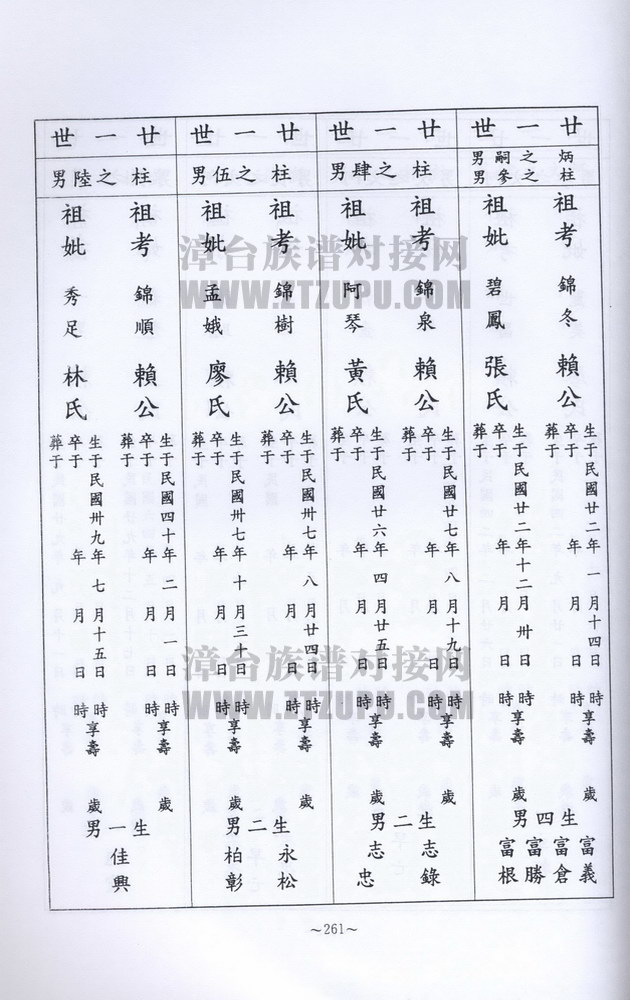 廿一世
炳之嗣男
柱之參男
祖考錦冬賴公
生于民國廿二年一月十四日時享壽歲
卒于年月日
葬于
祖妣碧鳳張氏
生于民國廿二年十二月卅日時享壽歲
卒于年月日
葬于
生四男
富義
富倉
富勝
富根
廿一世
柱之肆男
祖考錦泉賴公
生于民國廿七年八月十九日時享壽歲
卒于年月日
葬于
祖妣阿琴黃氏
生于民國廿六年四月廿五日時享壽歲
卒于年月日
葬于
生二男
志錄
志忠
廿一世
柱之伍男
祖考錦樹賴公
生于民國卅七年八月廿四日時享壽歲
卒于年月日
葬于
祖妣孟娥廖氏
生于民國卅七年十月三十日時享壽歲
卒于年月日
葬于
生二男
永松
柏彰
廿一世
柱之陸男
祖考錦順賴公
生于民國四十年二月一日時享壽歲
卒于年月日
葬于
祖妣秀足林氏
生于民國卅九年七月十五日時享壽歲
卒于年月日
葬于
生一男
佳興
～261～
漳台族谱对接网
WWW.ZTZUPU.COM
漳台族谱对接网
WWW.ZTZUPU.COM